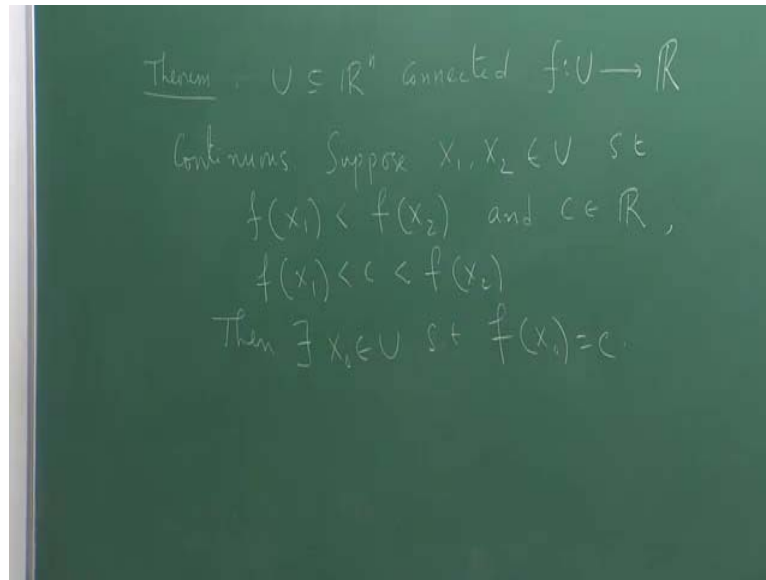 Theorem. U ⊆ ℝⁿ connected f: U → ℝ
Continuous. Suppose x₁, x₂ ∈ U st
f(x₁) < f(x₂) and c ∈ ℝ,
f(x₁) < c < f(x₂)
Then ∃ x₀ ∈ U st f(x₀) = c.